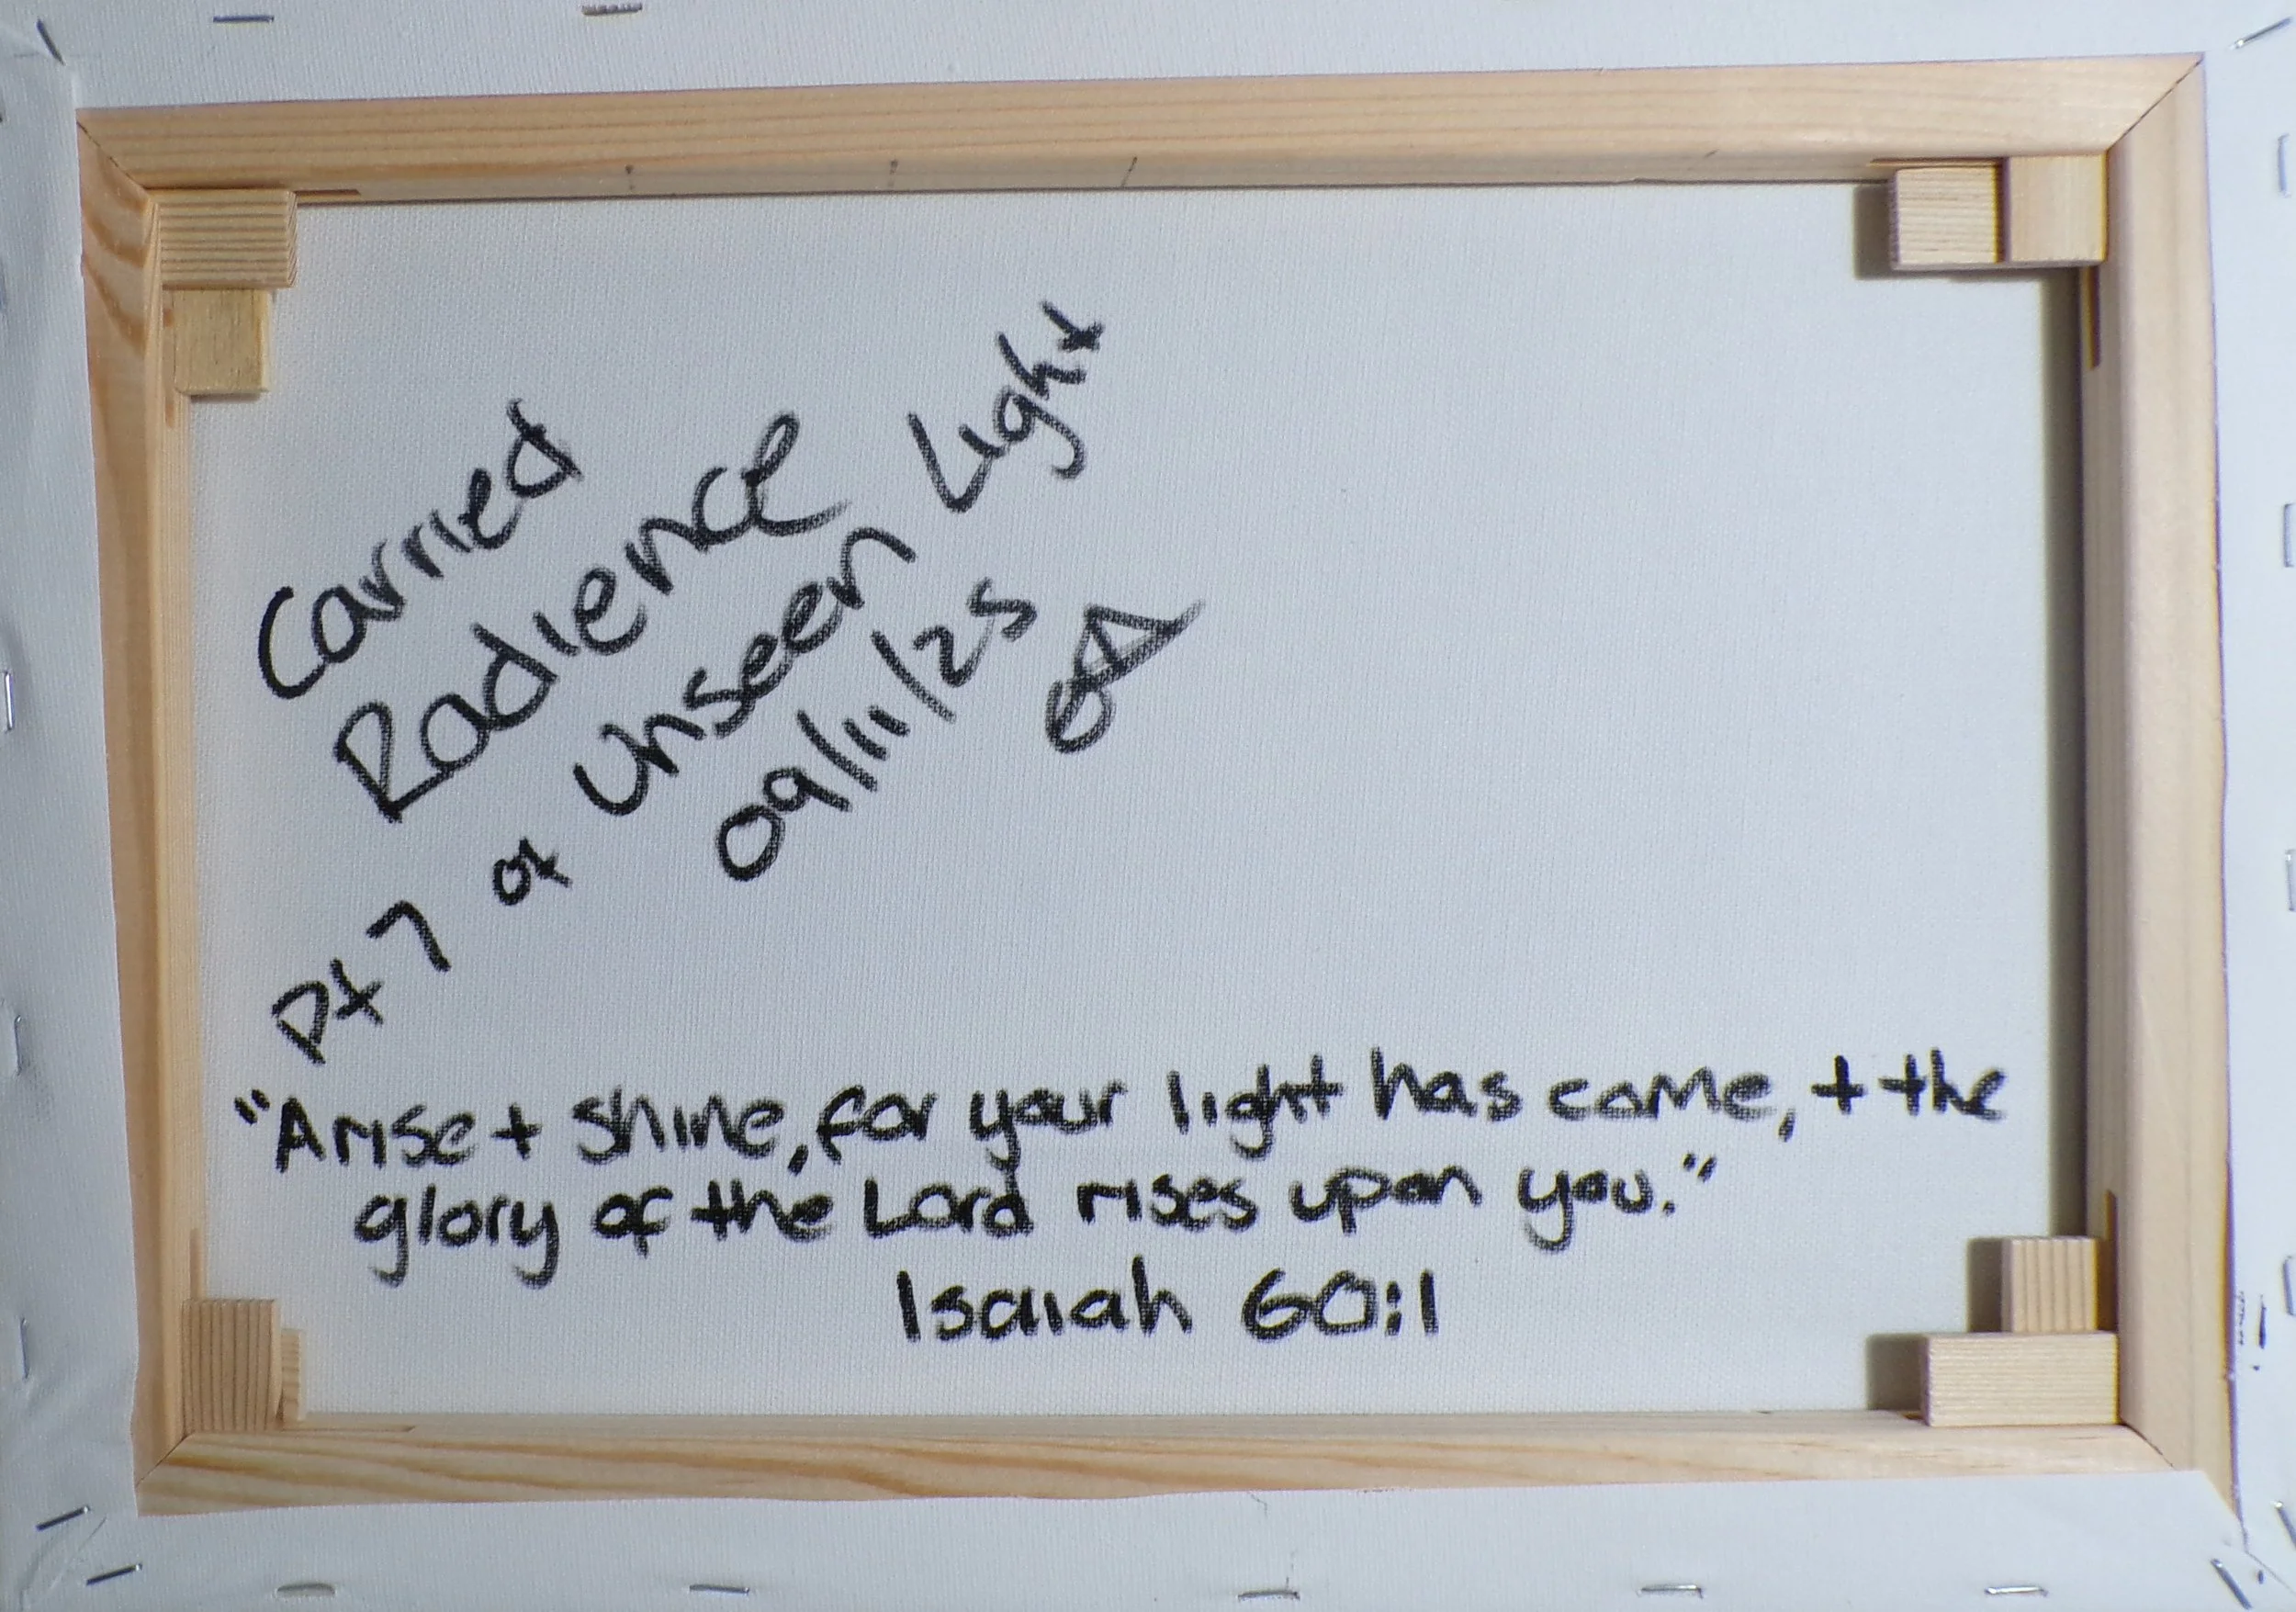 Carried
Radience
Pt 7 of Unseen Light
09/11/25
"Arise + shine, for your light has come, + the
glory of the Lord rises upon you."
Isaiah 60:1